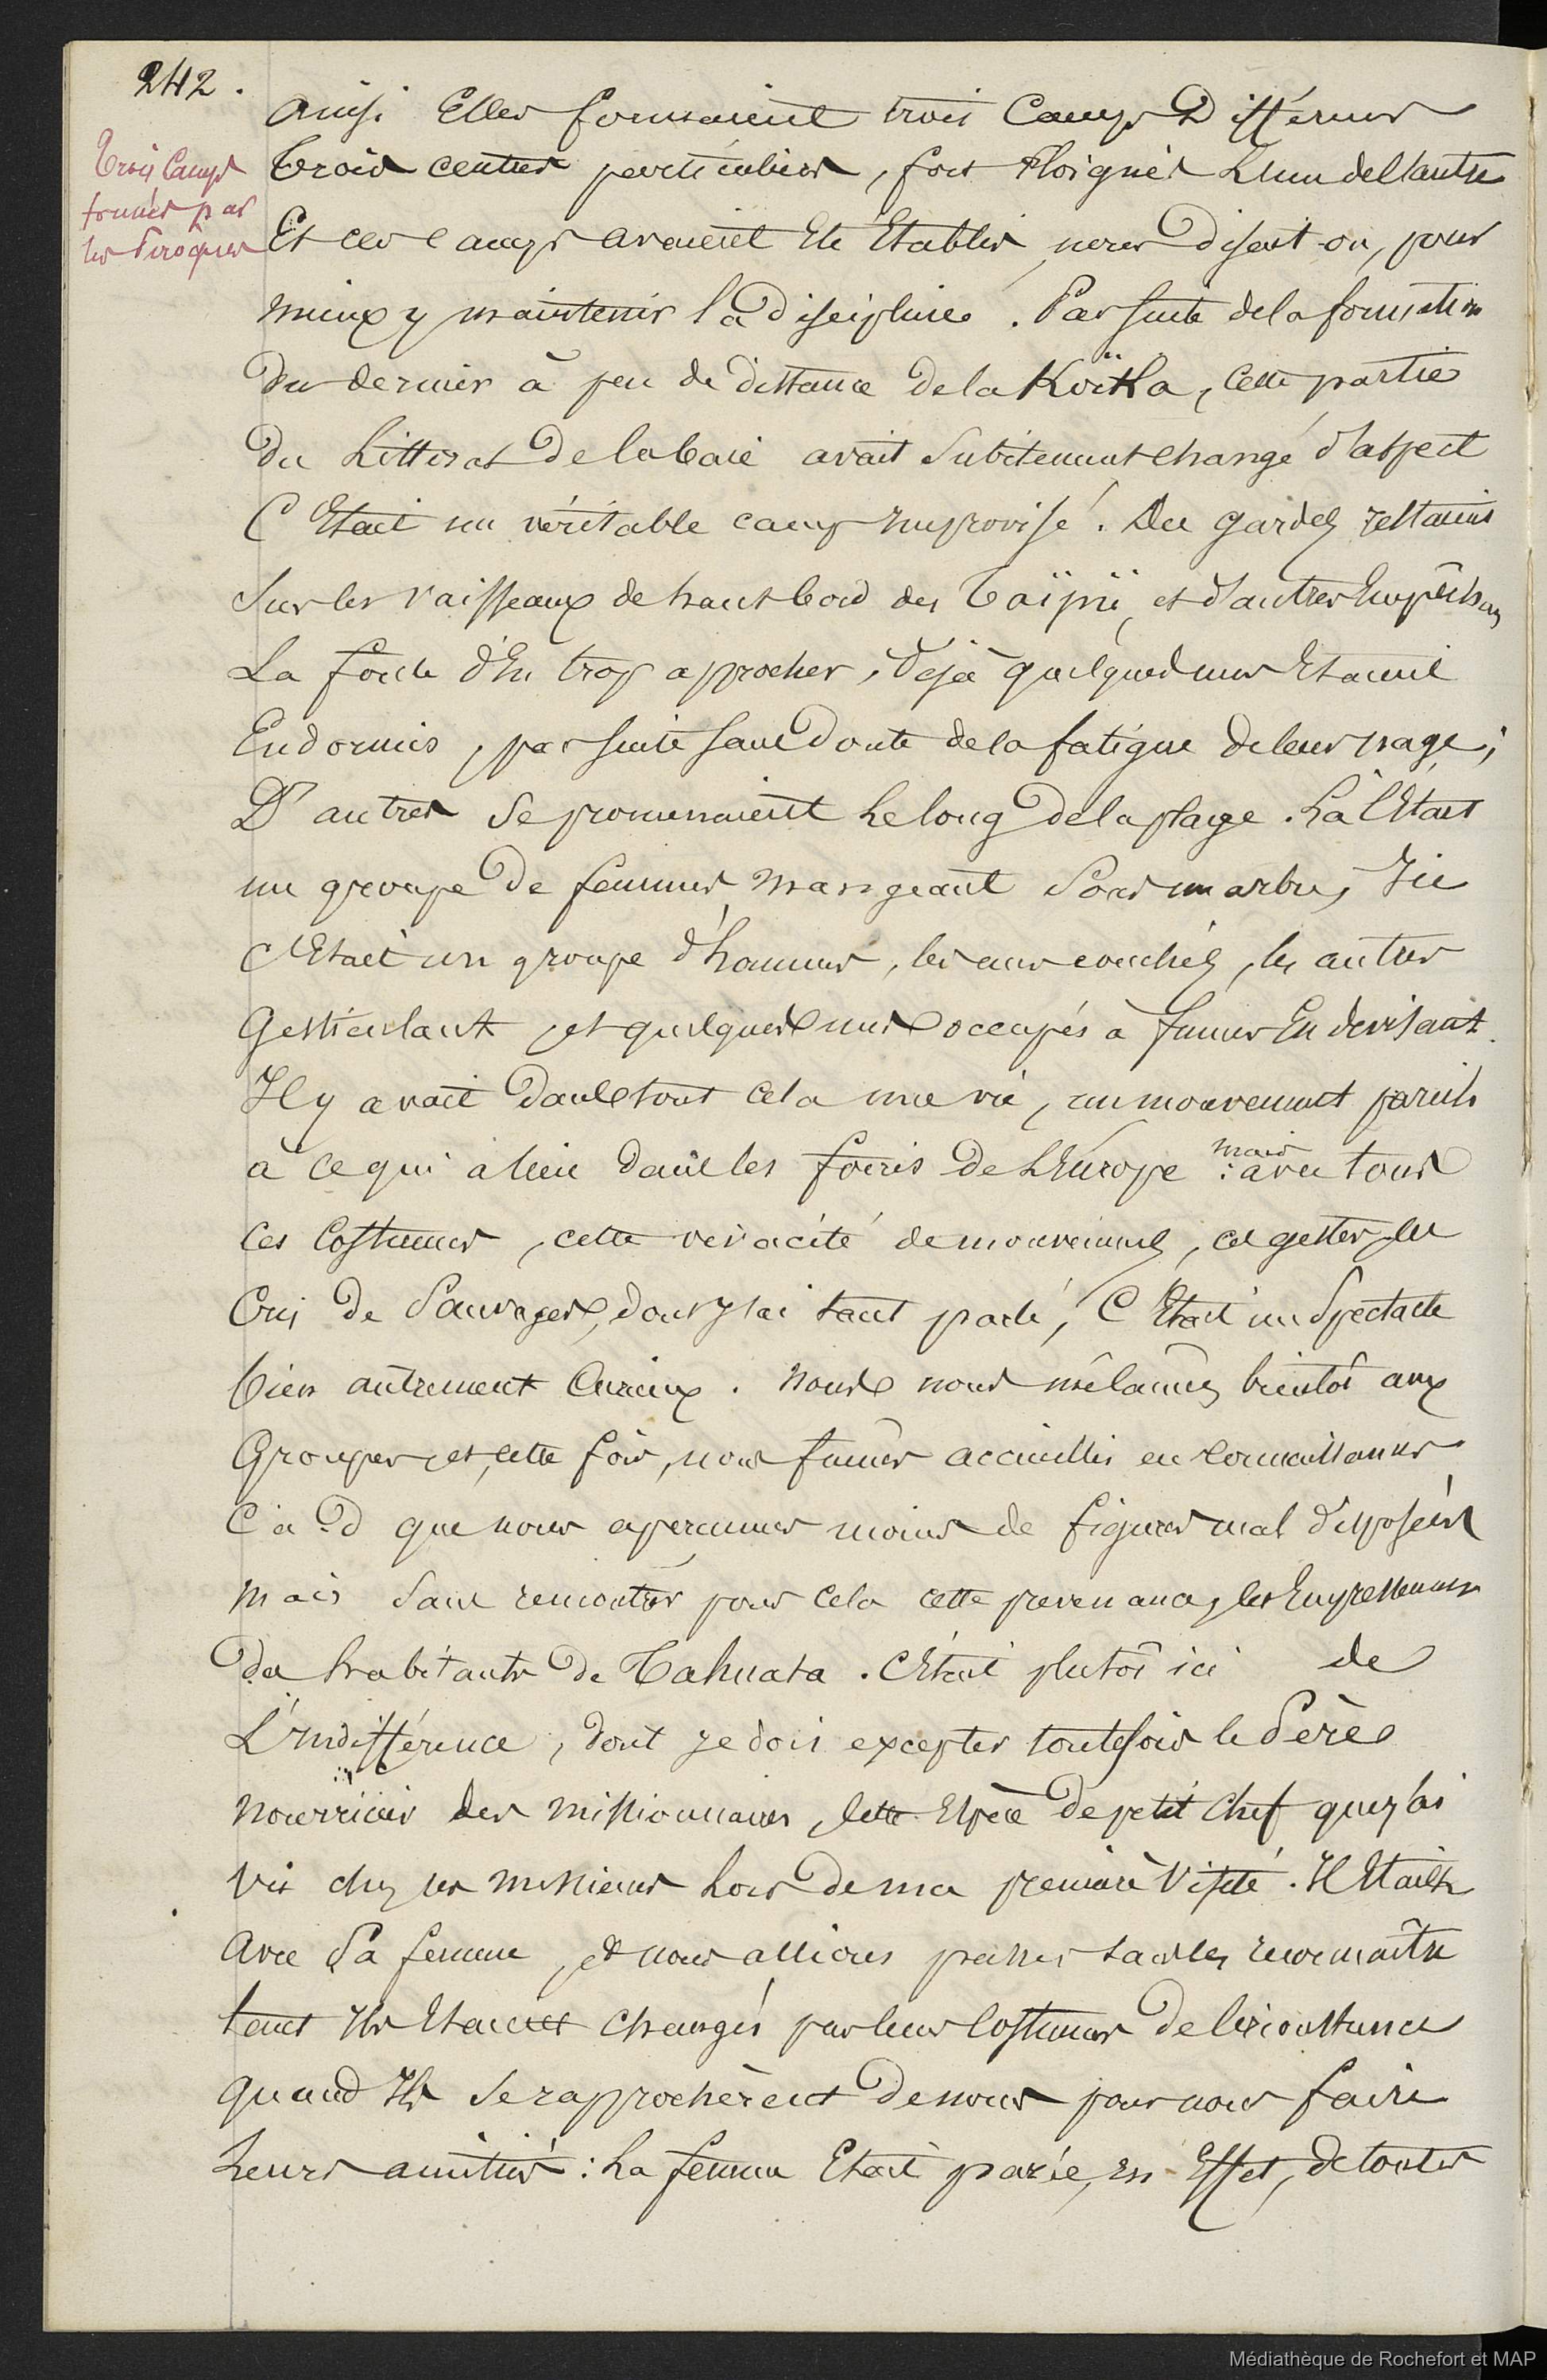 242.
Trois Camps
formés par
les Pirogues
Ainsi Elles formaient trois Camps Différens
trois centres particuliers, fort Eloignés L'un de l'autre
Et ces camps avaient Eté Etablis, nous disait-on, pour
mieux y maintenir la Discipline. Par suite de la formation
du dernier à peu de distance de la Koïka, Cette partie
du Littoral De la baie avait Subitement changé d'aspect
C'Etait un véritable camp Improvisé. Des gardes restaient
Sur les vaisseaux de haut bord des Taïpii, et d'autres Empêchan
La foule d'En trop approcher, Déjà quelques uns Etaient
Endormis, par suite sans Doute de la fatigue de leur nage;
D'autres Se promenaient Le long De la plage. Là C'Etait
un groupe De femmes Mangeant Sous un arbre, Ici
C'Etait un groupe d'hommes, les uns couchés, les autres
Gesticulant, et quelques uns occupés à fumer En devisant.
Il y avait Dans tout Cela une vie, un mouvement pareils
à ce qui a lieu dans les foires De L'Europe : mais avec tous
Ces Costumes, cette vivacité de mouvemens, ces gestes, les
Cris de Sauvages, dont J'ai tant parlé, C'Etait un Spectacle
bien autrement Curieux. Nous nous mêlâmes bientôt aux
Groupes, et, cette fois, nous fûmes accueillis en Connaissances
C. à. D que nous aperçumes moins de figures mal disposées
Mais Sans rencontrer pour Cela cette prevenance, les Empressemens
des habitants De Tahuata. C'Etait plutôt ici de
L'Indifférence, dont Je dois excepter toutefois le Père
Nourricier des missionnaires, Cette Espèce De petit Chef que J'ai
vu chez ces messieurs Lors De ma première Visite. Il Etait là
Avec Sa femme, et nous allions passer sans les reconnaître
tant Ils Etaient Changés par leurs Costumes De Circonstance
quand Ils Se rapprochèrent De nous pour nous faire
Leurs amitiés : La femme Etait parée, En Effet, De toutes
Médiathèque de Rochefort et MAP